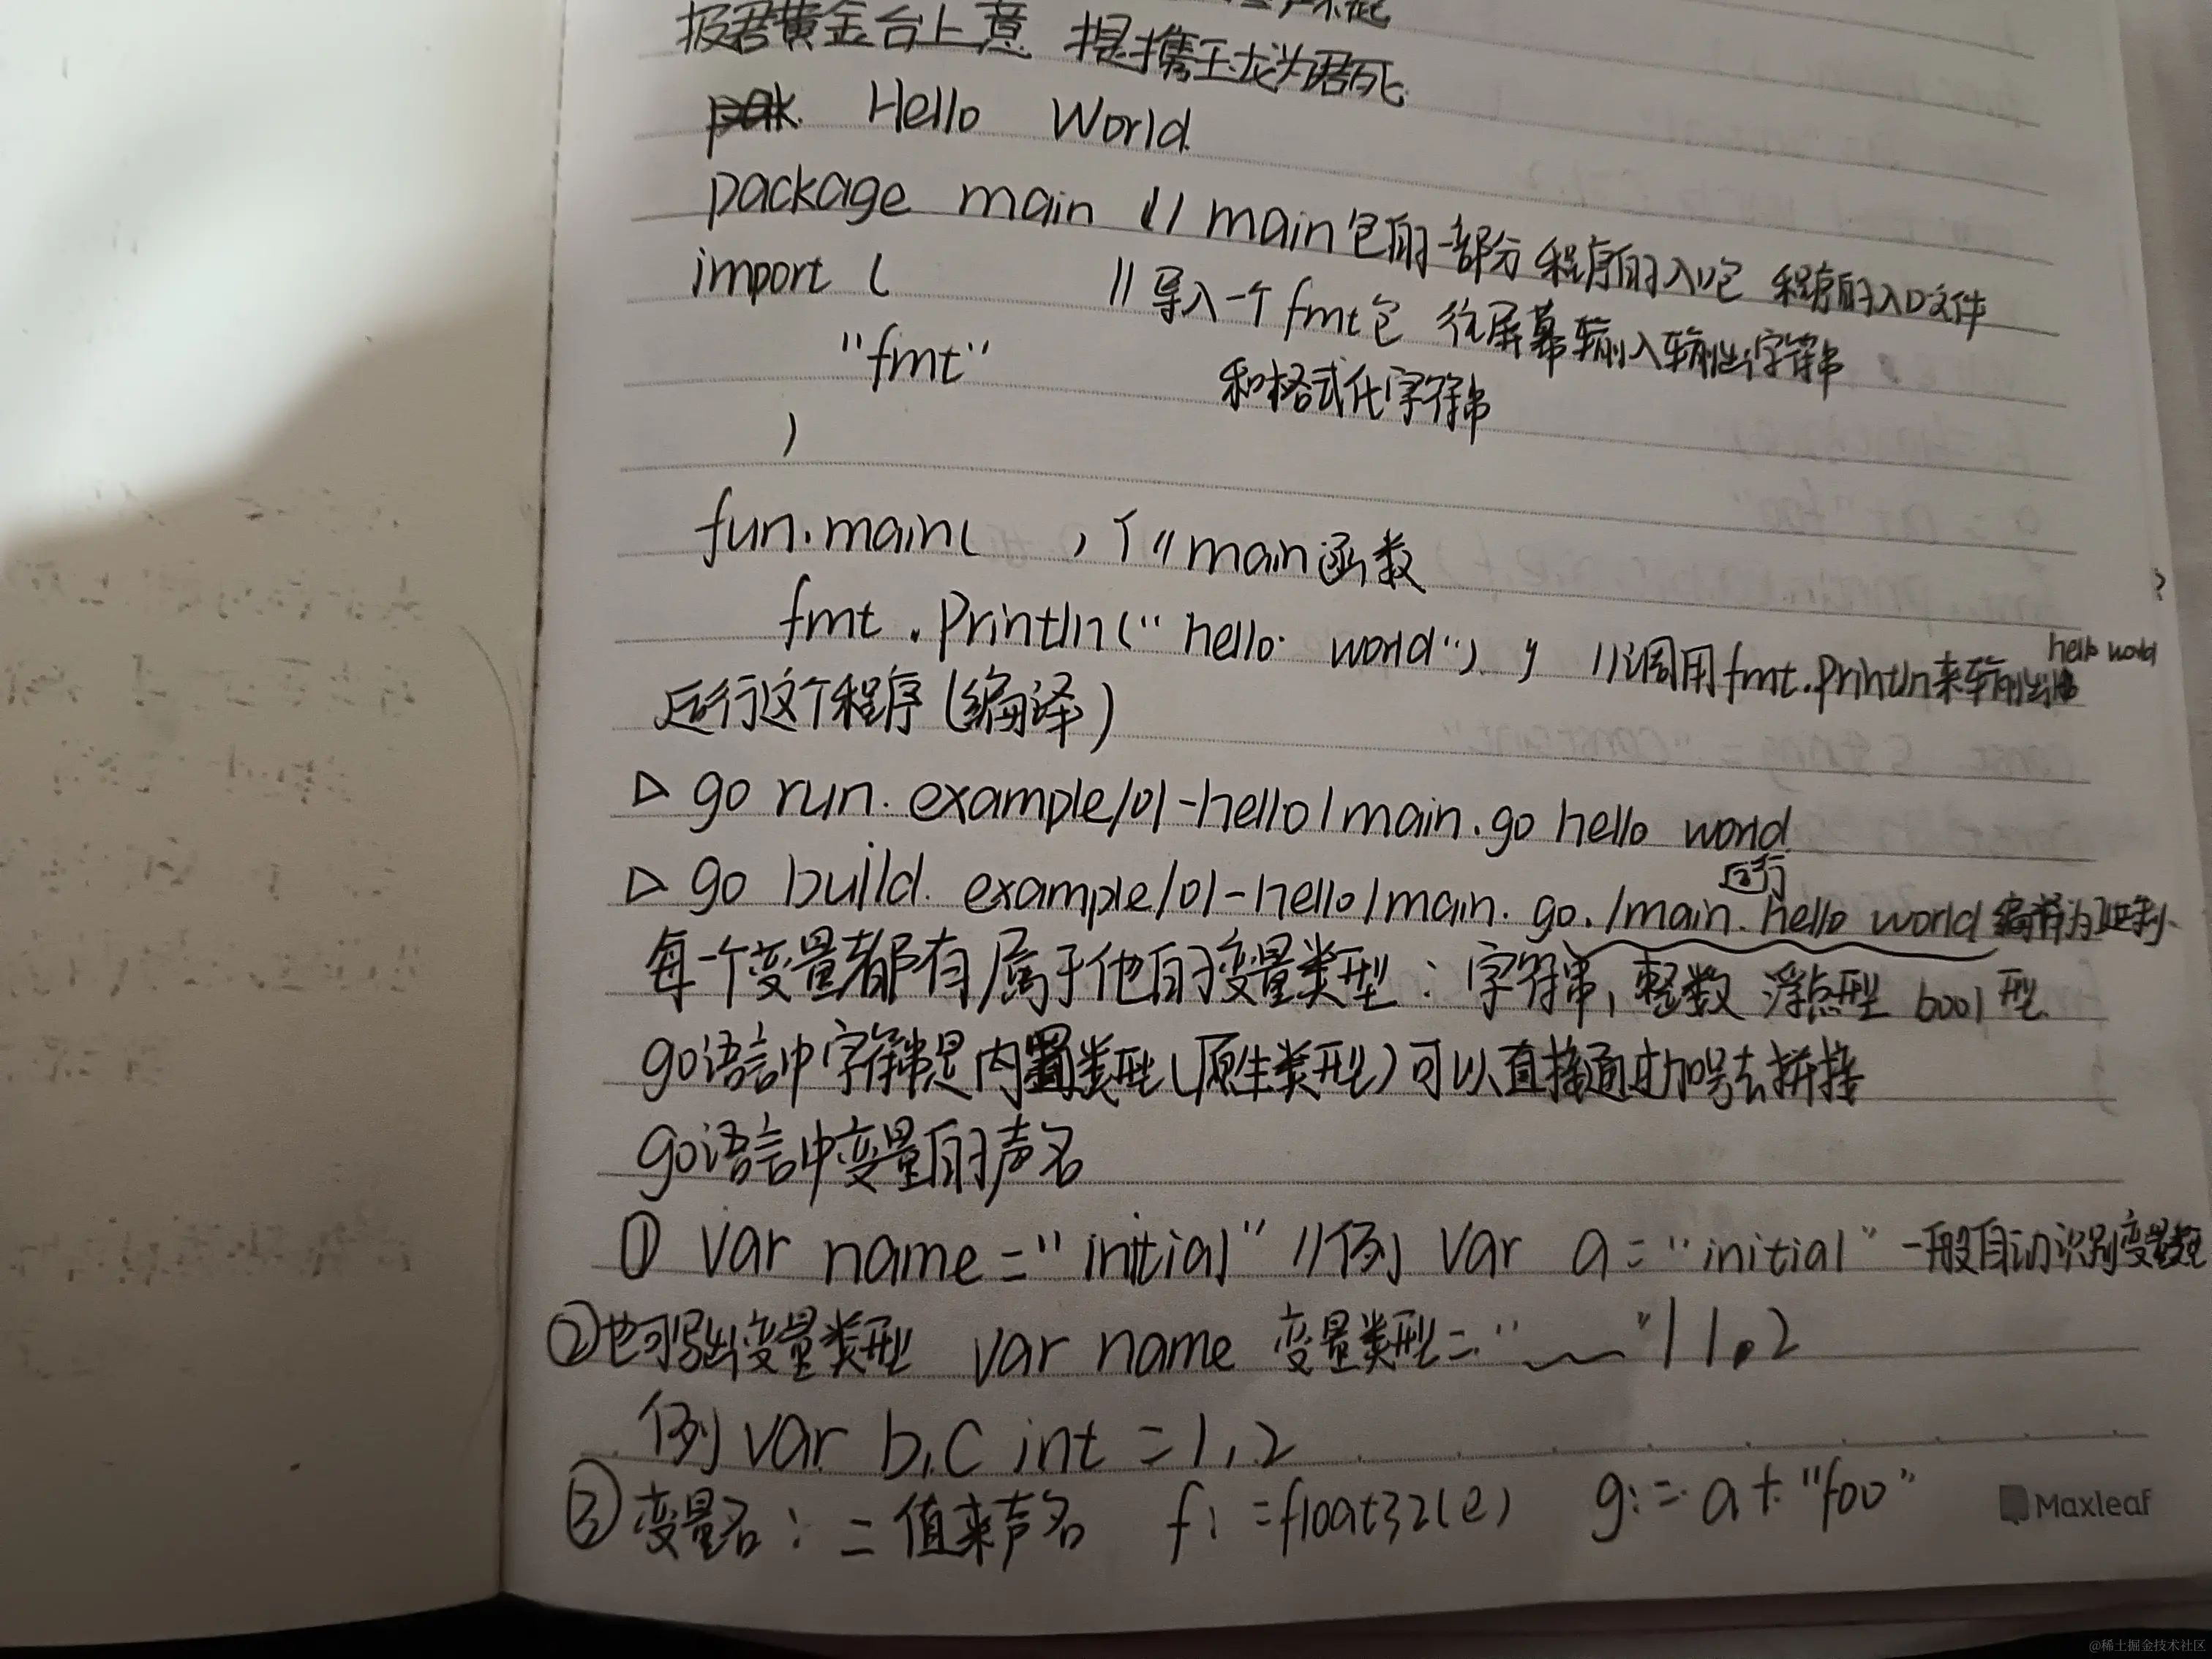 报君黄金台上意 提携玉龙为君死
Hello World
package main // main包的一部分 程序的入口包 程序的入口文件
import ( // 导入一个fmt包 往屏幕输入输出字符串
"fmt" 和格式化字符串
)
fun.main( ) { // main函数
fmt.Println("hello world") } // 调用fmt.Println来输出 hello world
运行这个程序(编译)
▷ go run example/01-hello/main.go hello world
运行
▷ go build example/01-hello/main.go ./main. hello world 编译为二进制
每一个变量都有属于他自己的变量类型：字符串, 整数 浮点型 bool型
go语言中字符串是内置类型(原生类型)可以直接通过加号去拼接
go语言中变量的声名
① var name = "initial" // 例 var a = "initial" 一般自动识别变量类型
②也可写出变量类型 var name 变量类型 = " " | 1,2
例 var b,c int = 1,2
③ 变量名 := 值来声名 f := float32(e) g := a + "foo"
Maxleaf
@稀土掘金技术社区